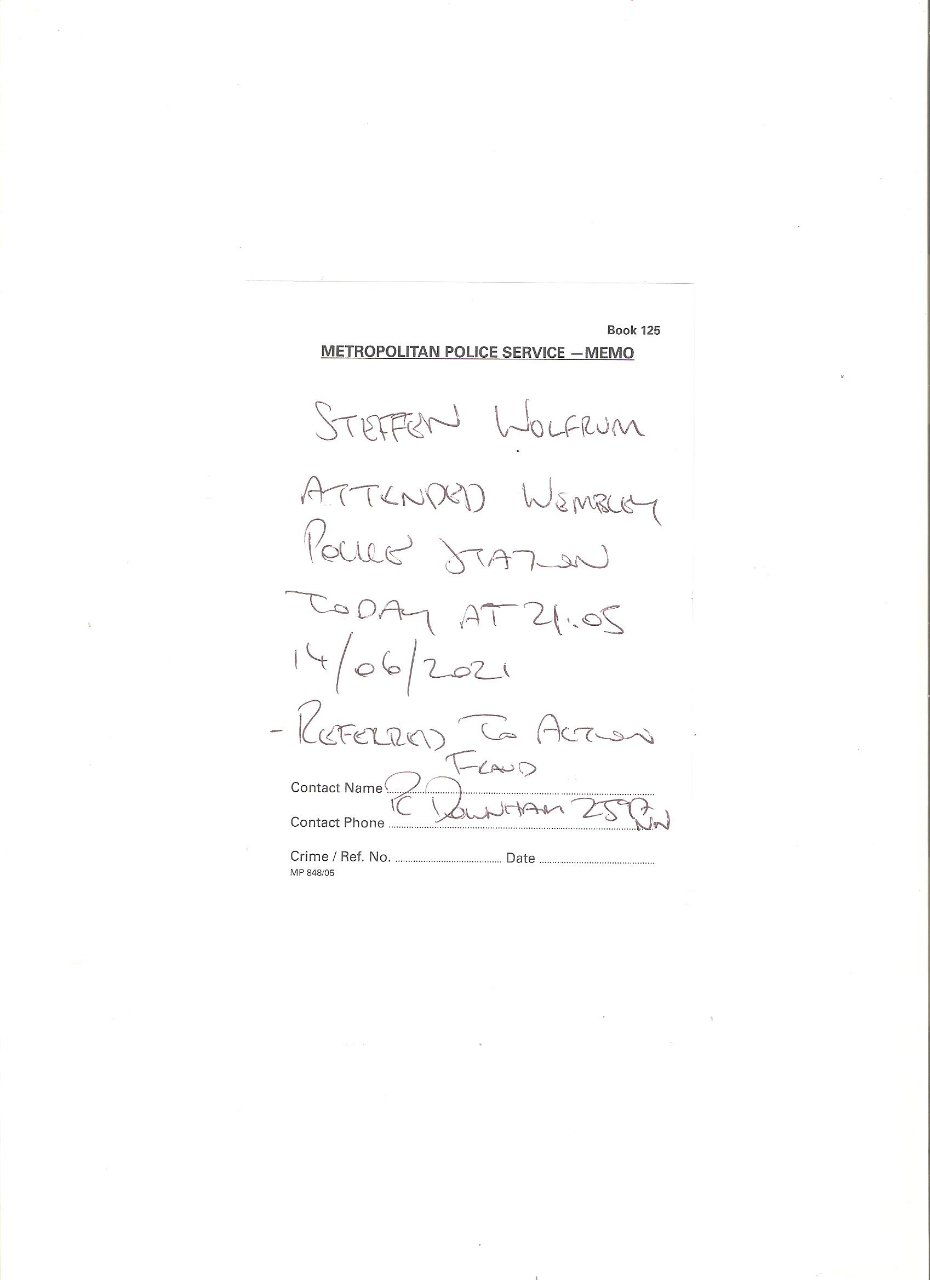 Book 125
METROPOLITAN POLICE SERVICE — MEMO
STEFFEN WOLFRUM
ATTENDED WEMBLEY
POLICE STATION
TODAY AT 21:05
14/06/2021
- REFERRED TO ACTION
FRAUD
Contact Name
PC DOWNHAM
Contact Phone
Crime / Ref. No. Date
MP 848/05